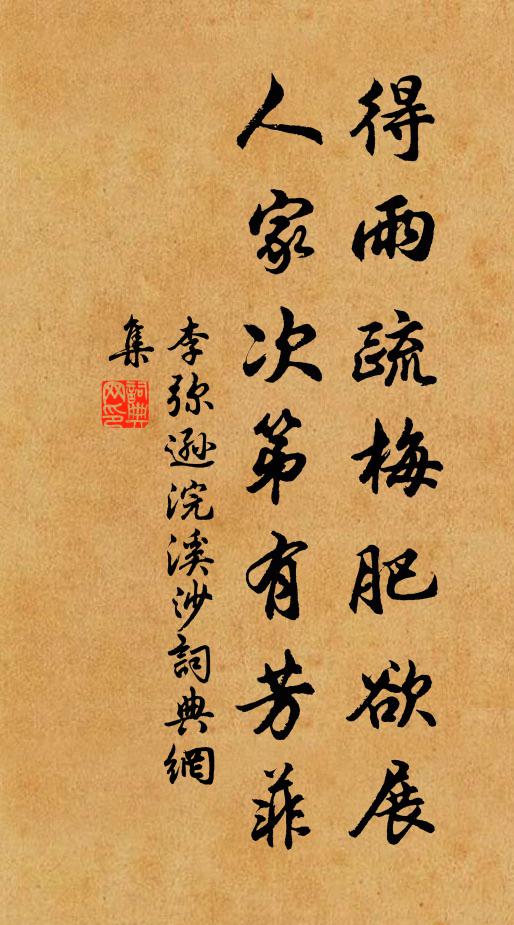 得雨疏梅肥欲展
人家次第有芳菲
李弥遜浣溪沙詞典網
集
詞典網印